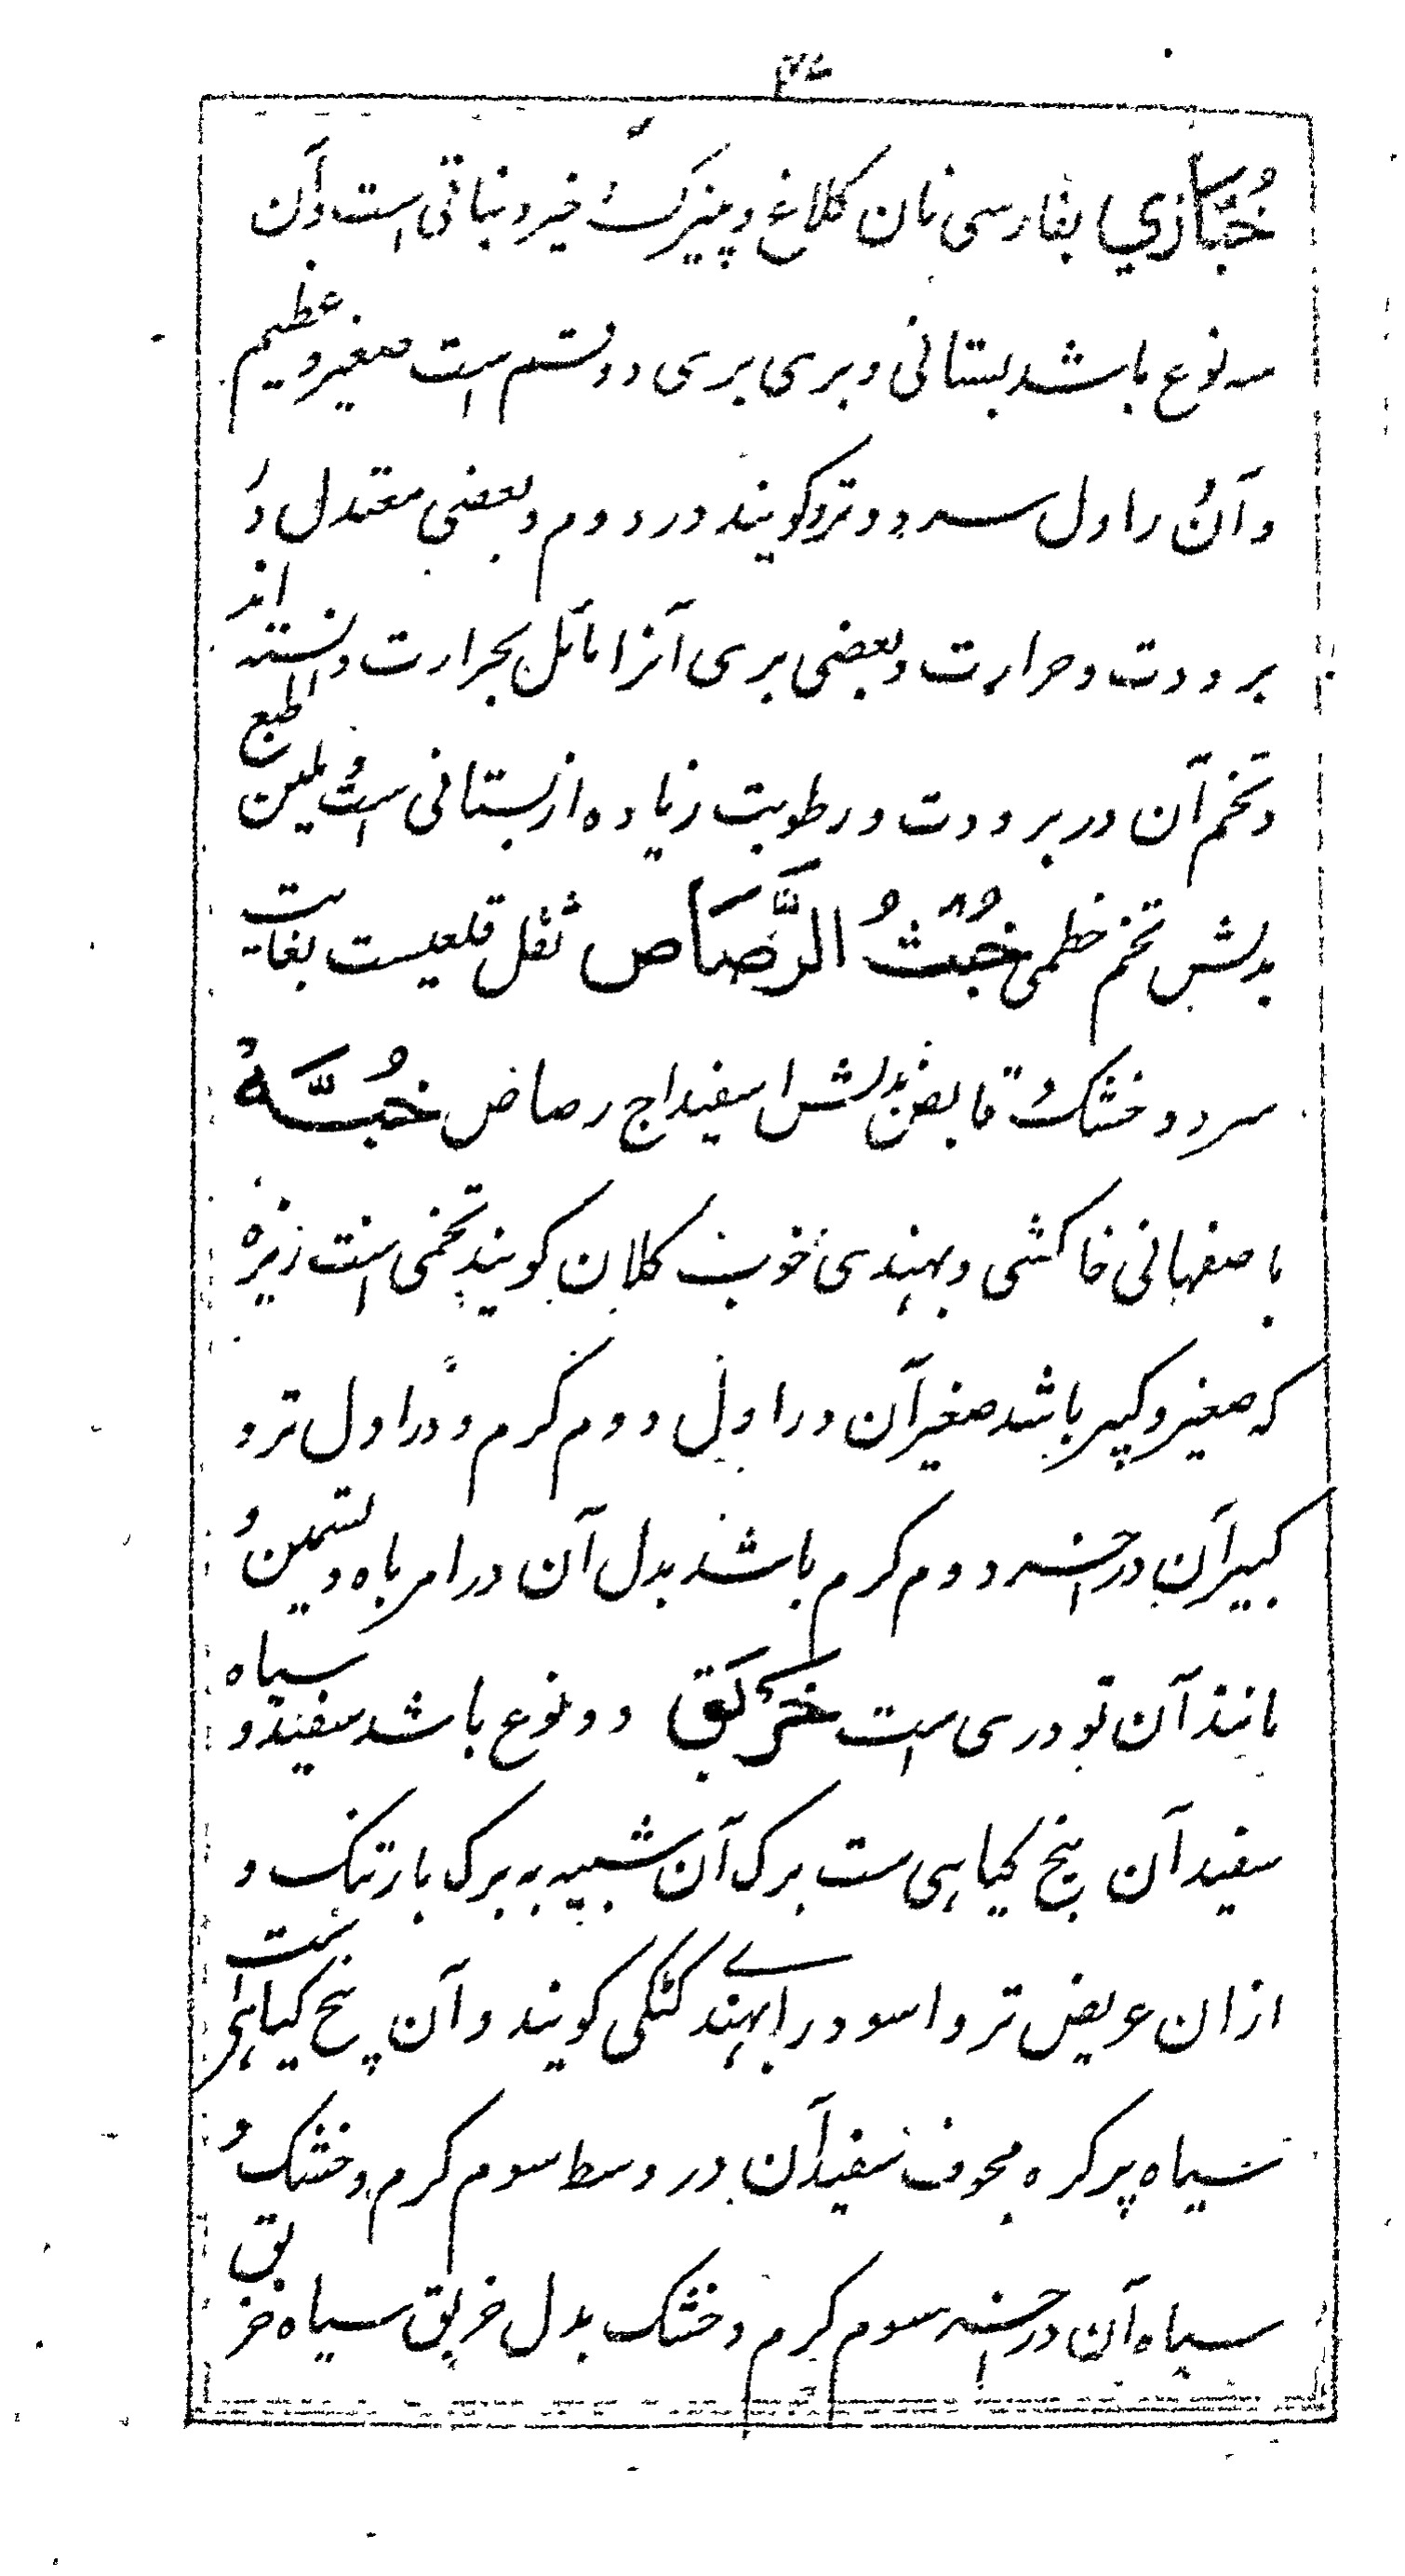 خُبَّازي بفارسی نان کلاغ و پنیرک خیرو نباتی است و آن
سه نوع باشد بستانی و بری بری دو قسم است صغیر و عظیم
و آن در اول سرد و تر و گویند در دوم و بعضی معتدل در
برودت و حرارت و بعضی بری آنرا مائل بحرارت دانسته اند
و تخم آن در برودت و رطوبت زیاده از بستانی است و ملین الطبع
بدلش تخم خطمی خُبْثُ الرَّصَاص ثفل قلعیست بغایت
سرد و خشک و قابض بدلش اسفیداج رصاص خُبَّه
باصفهانی خاکشی و بهندی خوب کلان گویند تخمی است ریزه
که صغیر و کبیر باشد صغیر آن در اول دوم گرم و در اول تر و
کبیر آن در آخر دوم گرم باشد بدل آن در امر باه و تسمین و
مانند آن تودری است خَرْبَق دو نوع باشد سفید و سیاه
سفید آن بیخ گیاهی ست برگ آن شبیه به برگ بارتنگ و
از ان عریض تر و اسود را بهندے کٹکی گویند و آن بیخ گیاهی است
سیاه پر گره مجوف سفید آن در وسط سوم گرم و خشک و
سیاه آن در آخر سوم گرم و خشک بدل خربق سیاه خربق